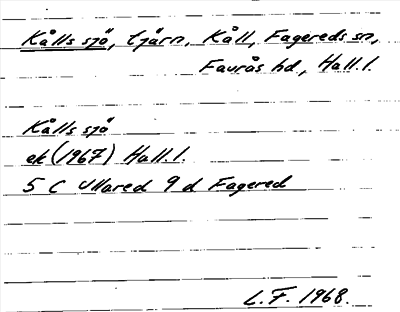 Kålls sjö, tjärn, Kåll, Fagereds sn,
Faurås hd, Hall.l.
Kålls sjö
ek (1967) Hall.l.
5 C Ullared 9 d Fagered
L.F. 1968.